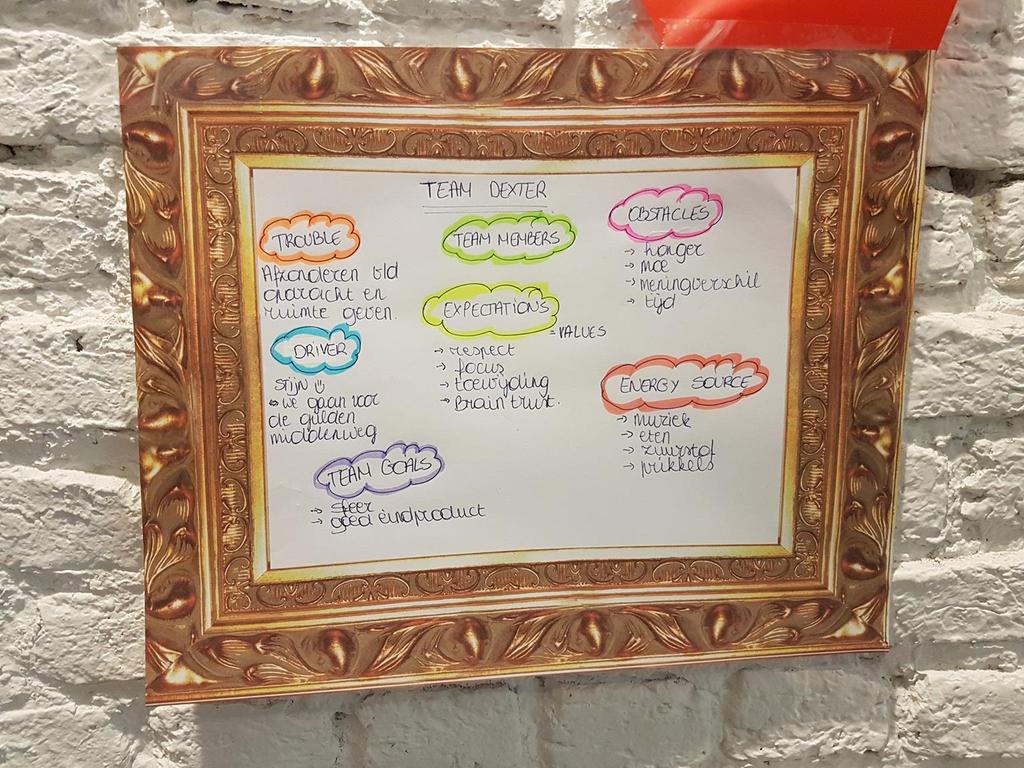 TEAM DEXTER
TROUBLE
Afzonderen vld
opdracht en
ruimte geven.
DRIVER
Stijn
↳ we gaan voor
de gulden
middenweg
TEAM GOALS
→ sfeer
→ goed eindproduct
TEAM MEMBERS
EXPECTATIONS
= VALUES
→ respect
→ focus
→ toewijding
→ Braintrust.
OBSTACLES
→ honger
→ moe
→ meningverschil
→ tijd
ENERGY SOURCE
→ muziek
→ eten
→ zuurstof
→ prikkels